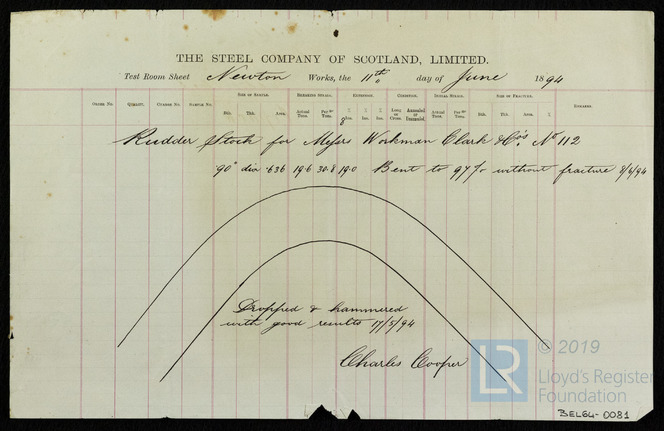 THE STEEL COMPANY OF SCOTLAND, LIMITED.
Test Room Sheet Newton Works, the 11th day of June 1894
SIZE OF SAMPLE. BREAKING STRAIN. EXTENSION. CONDITION. INITIAL STRAIN. SIZE OF FRACTURE.
ORDER No. QUALITY. CHARGE No. SAMPLE No. Bth. Thk. Area. Actual Tons. Per Tons. 8 Ins. Ins. Long or Cross. Annealed or Unannealed. Actual Tons. Per Tons. Bth. Thk. Area. REMARKS.
Rudder Stock for Messrs Workman Clark & Co's No 112
90° dia .636 19.6 30.8 19.0 Bent to 97% without fracture 8/6/94
Dropped & hammered
with good results 17/5/94
Charles Cooper
LR © 2019
Lloyd's Register
Foundation
BEL64-0081